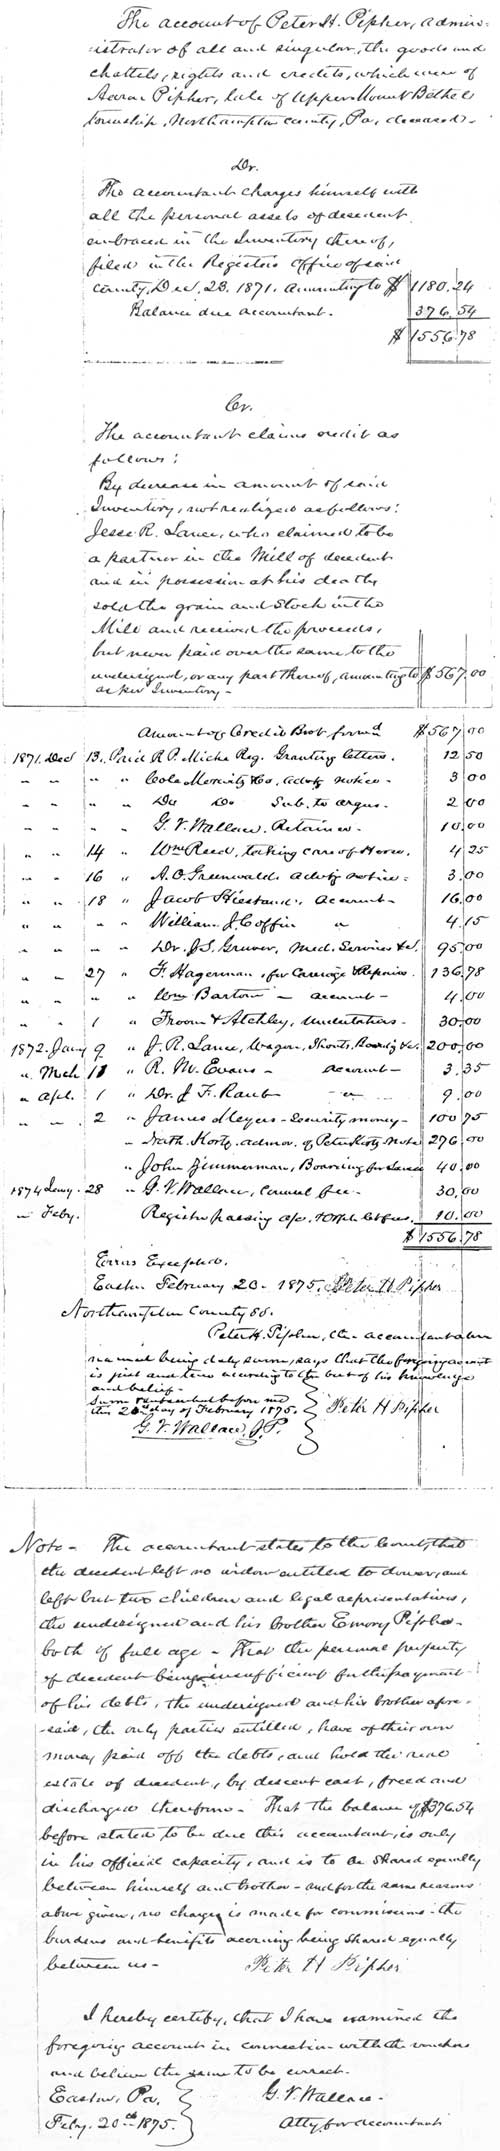 The account of Peter H. Pipher, admin-
istrator of all and singular, the goods and
chattels, rights and credits, which were of
Aaron Pipher, late of Upper Mount Bethel
township, Northampton county, Pa, deceased.
Dr.
The accountant charges himself with
all the personal assets of decedent
embraced in the Inventory thereof,
filed in the Registers office of said
county, Dec. 23. 1871. amounting to $ 1180.24
Balance due accountant. 376.54
$ 1556.78
Cr.
The accountant claims credit as
follows:
By decrease in amount of said
Inventory, not realized as follows:
Jesse R. Lance, who claimed to be
a partner in the Mill of decedent
and in possession at his death,
sold the grain and stock in the
Mill and received the proceeds,
but never paid over the same to the
undersigned, or any part thereof, amounting to $567.00
as per Inventory-
Amount of Credit Brot forwd $567.00
1871. Dec 13. Paid R P. Miche Reg. Granting letters. 12 50
" " " " Cole Morwitz & Co. advtg notice - 3 00
" " " " Do Do Sub. to argus - 2 00
" " " " G. V. Wallace. Retainer - 10.00
" " 14 " Wm Reed, taking care of Horse. 4 25
" " 16 " A. O. Greenwald advtg notice - 3.00
" " 18 " Jacob Hiestand. Account - 16.00
" " " " William J. Coffin " 4.15
" " " " Dr. J. S. Gruver, Med. Services &c. 95.00
" " 27 " F. Hagerman, for Carriage & Repairs. 136.78
" " " " Wm Bartow - account - 4.00
" " 1 " Froom & Atchley, Undertakers - 30.00
1872. Jany 9 " J. R. Lance, Wagon, Shoats, Boardg &c. 200.00
" Mch 11 " R. M. Evans - account - 3.35
" Apl. 1 " Dr. J. F. Raub - " - 9.00
" " 2 " James Meyers - Security money - 100 75
" Nath. Kortz admor. of Peter Kortz Note 276.00
" John Zimmerman, Boarding for Lance 40.00
1874 Jany. 28 " G. V Wallace, Counsel fee - 30.00
" Feby. Register passing a/c. & Orph. Ct fees. 10.00
$1556.78
Errors Excepted.
Easton February 20 - 1875. Peter H Pipher
Northampton County ss.
Peter H. Pipher, the accountant above
named being duly sworn, says that the foregoing account
is just and true according to the best of his knowledge
and belief -
Sworn & subscribed before me
this 20th day of February 1875. Peter H Pipher
G. V. Wallace, J. P.
Note - The accountant states to the Court, that
the decedent left no widow entitled to dower, and
left but two children and legal representatives,
the undersigned and his brother Emory Pipher -
both of full age - That the personal property
of decedent being insufficient for the payment
of his debts, the undersigned and his brother afore-
-said, the only parties entitled, have of their own
money paid off the debts, and hold the real
estate of decedent, by descent cast, freed and
discharged therefrom - That the balance of $376.54
before stated to be due this accountant, is only
in his official capacity, and is to be shared equally
between himself and brother - and for the same reasons
above given, no charge is made for commissions - the
burdens and benefits accruing being shared equally
between us - Peter H Pipher
I hereby certify, that I have examined the
foregoing account in connection with the vouchers
and believe the same to be correct.
Easton, Pa, G. V. Wallace -
Feby. 20th 1875. Atty for accountant